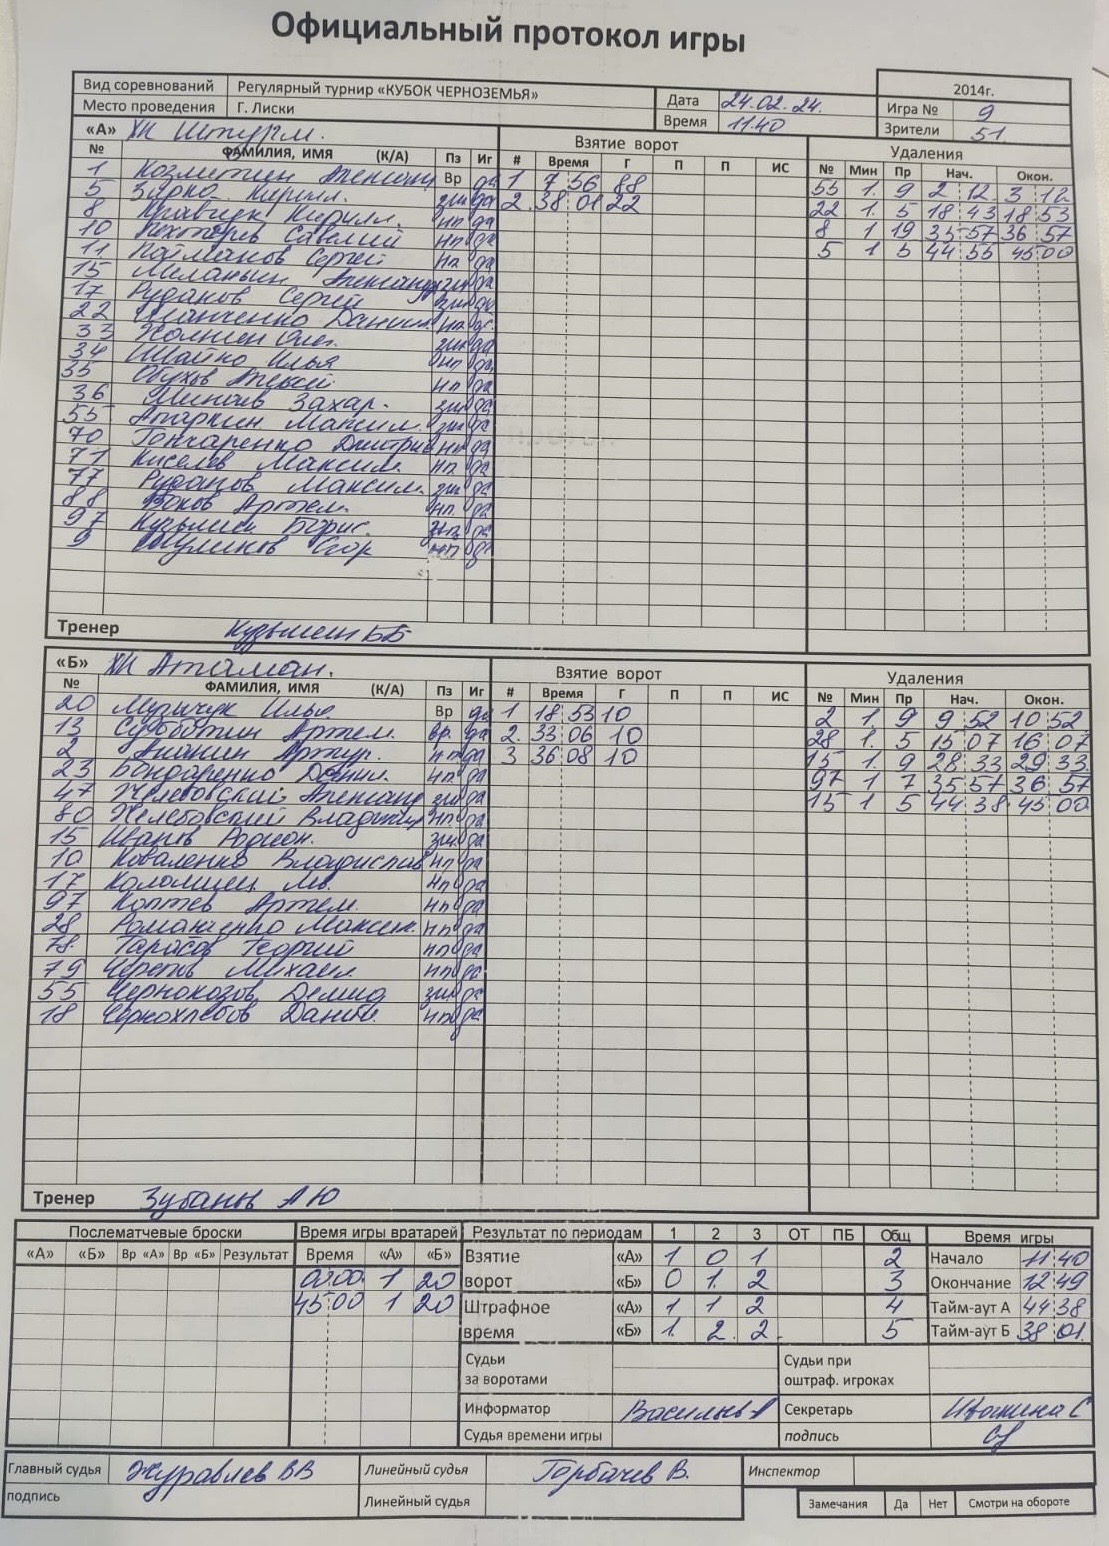 Официальный протокол игры
Вид соревнований Регулярный турнир «КУБОК ЧЕРНОЗЕМЬЯ» Дата 24.02.24. 2014г.
Место проведения Г. Лиски Время 11.40 Игра № 9
Зрители 51.
«А» ХК Штурм. Взятие ворот Удаления
№ ФАМИЛИЯ, ИМЯ (К/А) Пз Иг # Время Г П П ИС № Мин Пр Нач. Окон.
1 Вр да 1 7 56 88 55 1. 9 2 12 3 12
5 Кирилл. зщ да 2. 38 01 22 22 1. 5 18 43 18 53
8 Кравчук Кирилл. нп да 8 1 19 35 57 36 57
10 Савелий нп да 5 1 5 44 55 45 00
11 Найманов Сергей нп да
15 Меланьин Александр зщ да
17 Руданов Сергей зщ да
22 Даниил. нп да
33 Олег. зщ да
34 Швайко Илья нп да
35 Обухов Алексей нп да
36 Минаев Захар. зщ да
55 Апаркин Максим. зщ да
70 Гончаренко Дмитрий нп да
71 Киселев Максим. нп да
77 Руданов Максим. зщ да
88 Артем. нп да
97 Кузьмин Борис. нп да
9 Шуликов Егор нп да
Тренер Кузьмин Б Б
«Б» ХК Атаман. Взятие ворот Удаления
№ ФАМИЛИЯ, ИМЯ (К/А) Пз Иг # Время Г П П ИС № Мин Пр Нач. Окон.
20 Илья Вр да 1 18 53 10 2 1. 9 9 52 10 52
13 Субботин Артем. вр. да 2. 33 06 10 28 1. 5 15 07 16 07
2 Ананин Артур. нп да 3 36 08 10 15 1. 9 28 33 29 33
23 Бондаренко Даниил. нп да 97 1 7 35 57 36 57
47 Желтовский Александр зщ да 15 1 5 44 38 45 00
80 Желтовский Владимир нп да
15 Иванов Родион. зщ да
10 Коваленко Владислав нп да
17 Коломиец Лев. нп да
97 Коптев Артем. нп да
28 Романченко Максим. нп да
78. Тарасов Георгий нп да
79 Черепов Михаил нп да
55 Чернокозов Демид зщ да
18 Чернохлебов Данил. нп да
Тренер Зубанов А Ю
Послематчевые броски Время игры вратарей Результат по периодам 1 2 3 ОТ ПБ Общ Время игры
«А» «Б» Вр «А» Вр «Б» Результат Время «А» «Б» Взятие «А» 1 0 1 2 Начало 11 40
00 00 1 20 ворот «Б» 0 1. 2 3 Окончание 12 49
45 00 1 20 Штрафное «А» 1 1 2 4 Тайм-аут А 44 38
время «Б» 1. 2. 2. 5 Тайм-аут Б 38 01.
Судьи за воротами Судьи при оштраф. игроках
Информатор Васильев А Секретарь Ивакина С
Судья времени игры подпись
Главный судья Журавлев В В Линейный судья Горбачев В. Инспектор
подпись Линейный судья Замечания Да Нет Смотри на обороте